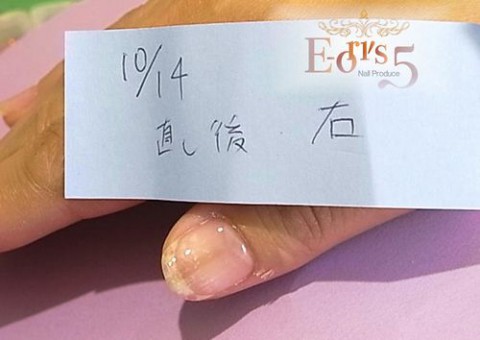 E-ori's 5
Nail Produce
10/14
直し後 右